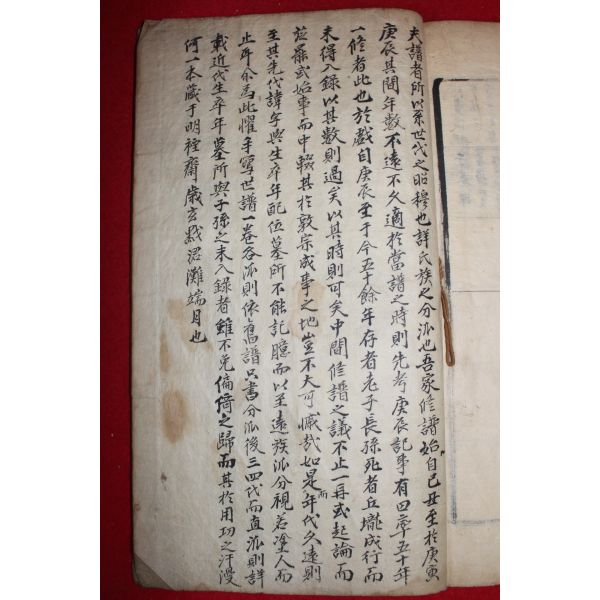 夫譜者所以系世代之昭穆也詳氏族之分派也吾家修譜始自己丑至於庚寅
庚辰其間年數不遠不久適於當譜之時則先考庚辰記事有四五十年
一修者此也於戲自庚辰至于今五十餘年存者老子長孫死者丘壠成行而
未得入錄以其數則過矣以其時則可矣中間修譜之議不止一再或起論而
旋罷或始事而中輟其於敦宗成事之地豈不大可慨哉如是而年代久遠則
至其先代諱字與生卒年配位墓所不能記臆而以至遠族派分視若塗人而
止耳余爲此懼手寫世譜一卷各派則依舊譜只書分派後三四代而直派則詳
載近代生卒年墓所與子孫之未入錄者雖不免偏倚之歸而其於用功之汗漫
何一本藏于明禋齋歲玄黓涒灘端月也